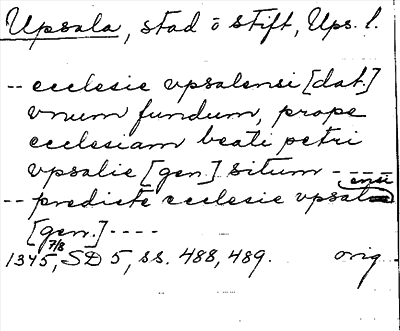 Upsala, stad o stift, Ups. l.
-- ecclesie vpsalensi [dat.]
vnum fundum, prope
ecclesiam beati petri
vpsalie [gen.] situm ----
-- predicte ecclesie vpsalensi
[gen.] ----
1345 7/8, SD 5, ss. 488, 489. orig.